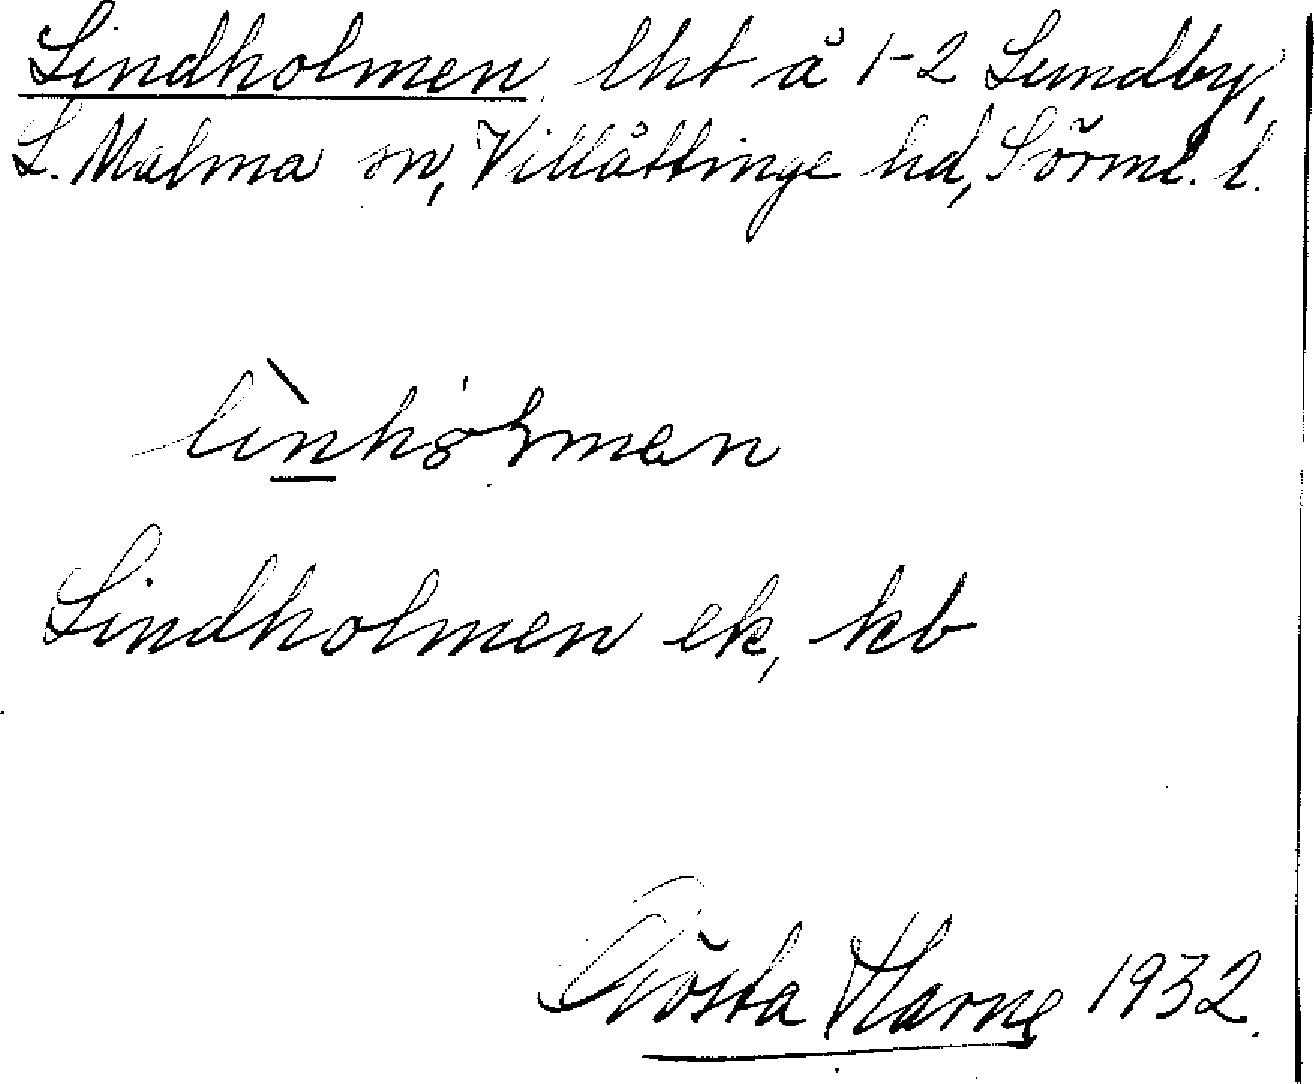 Lindholmen lht å 1-2 Lundby,
L. Malma sn, Villåttinge hd, Sörml. l.
lìnhólmen
Lindholmen ek, kb
Gösta Harne 1932.